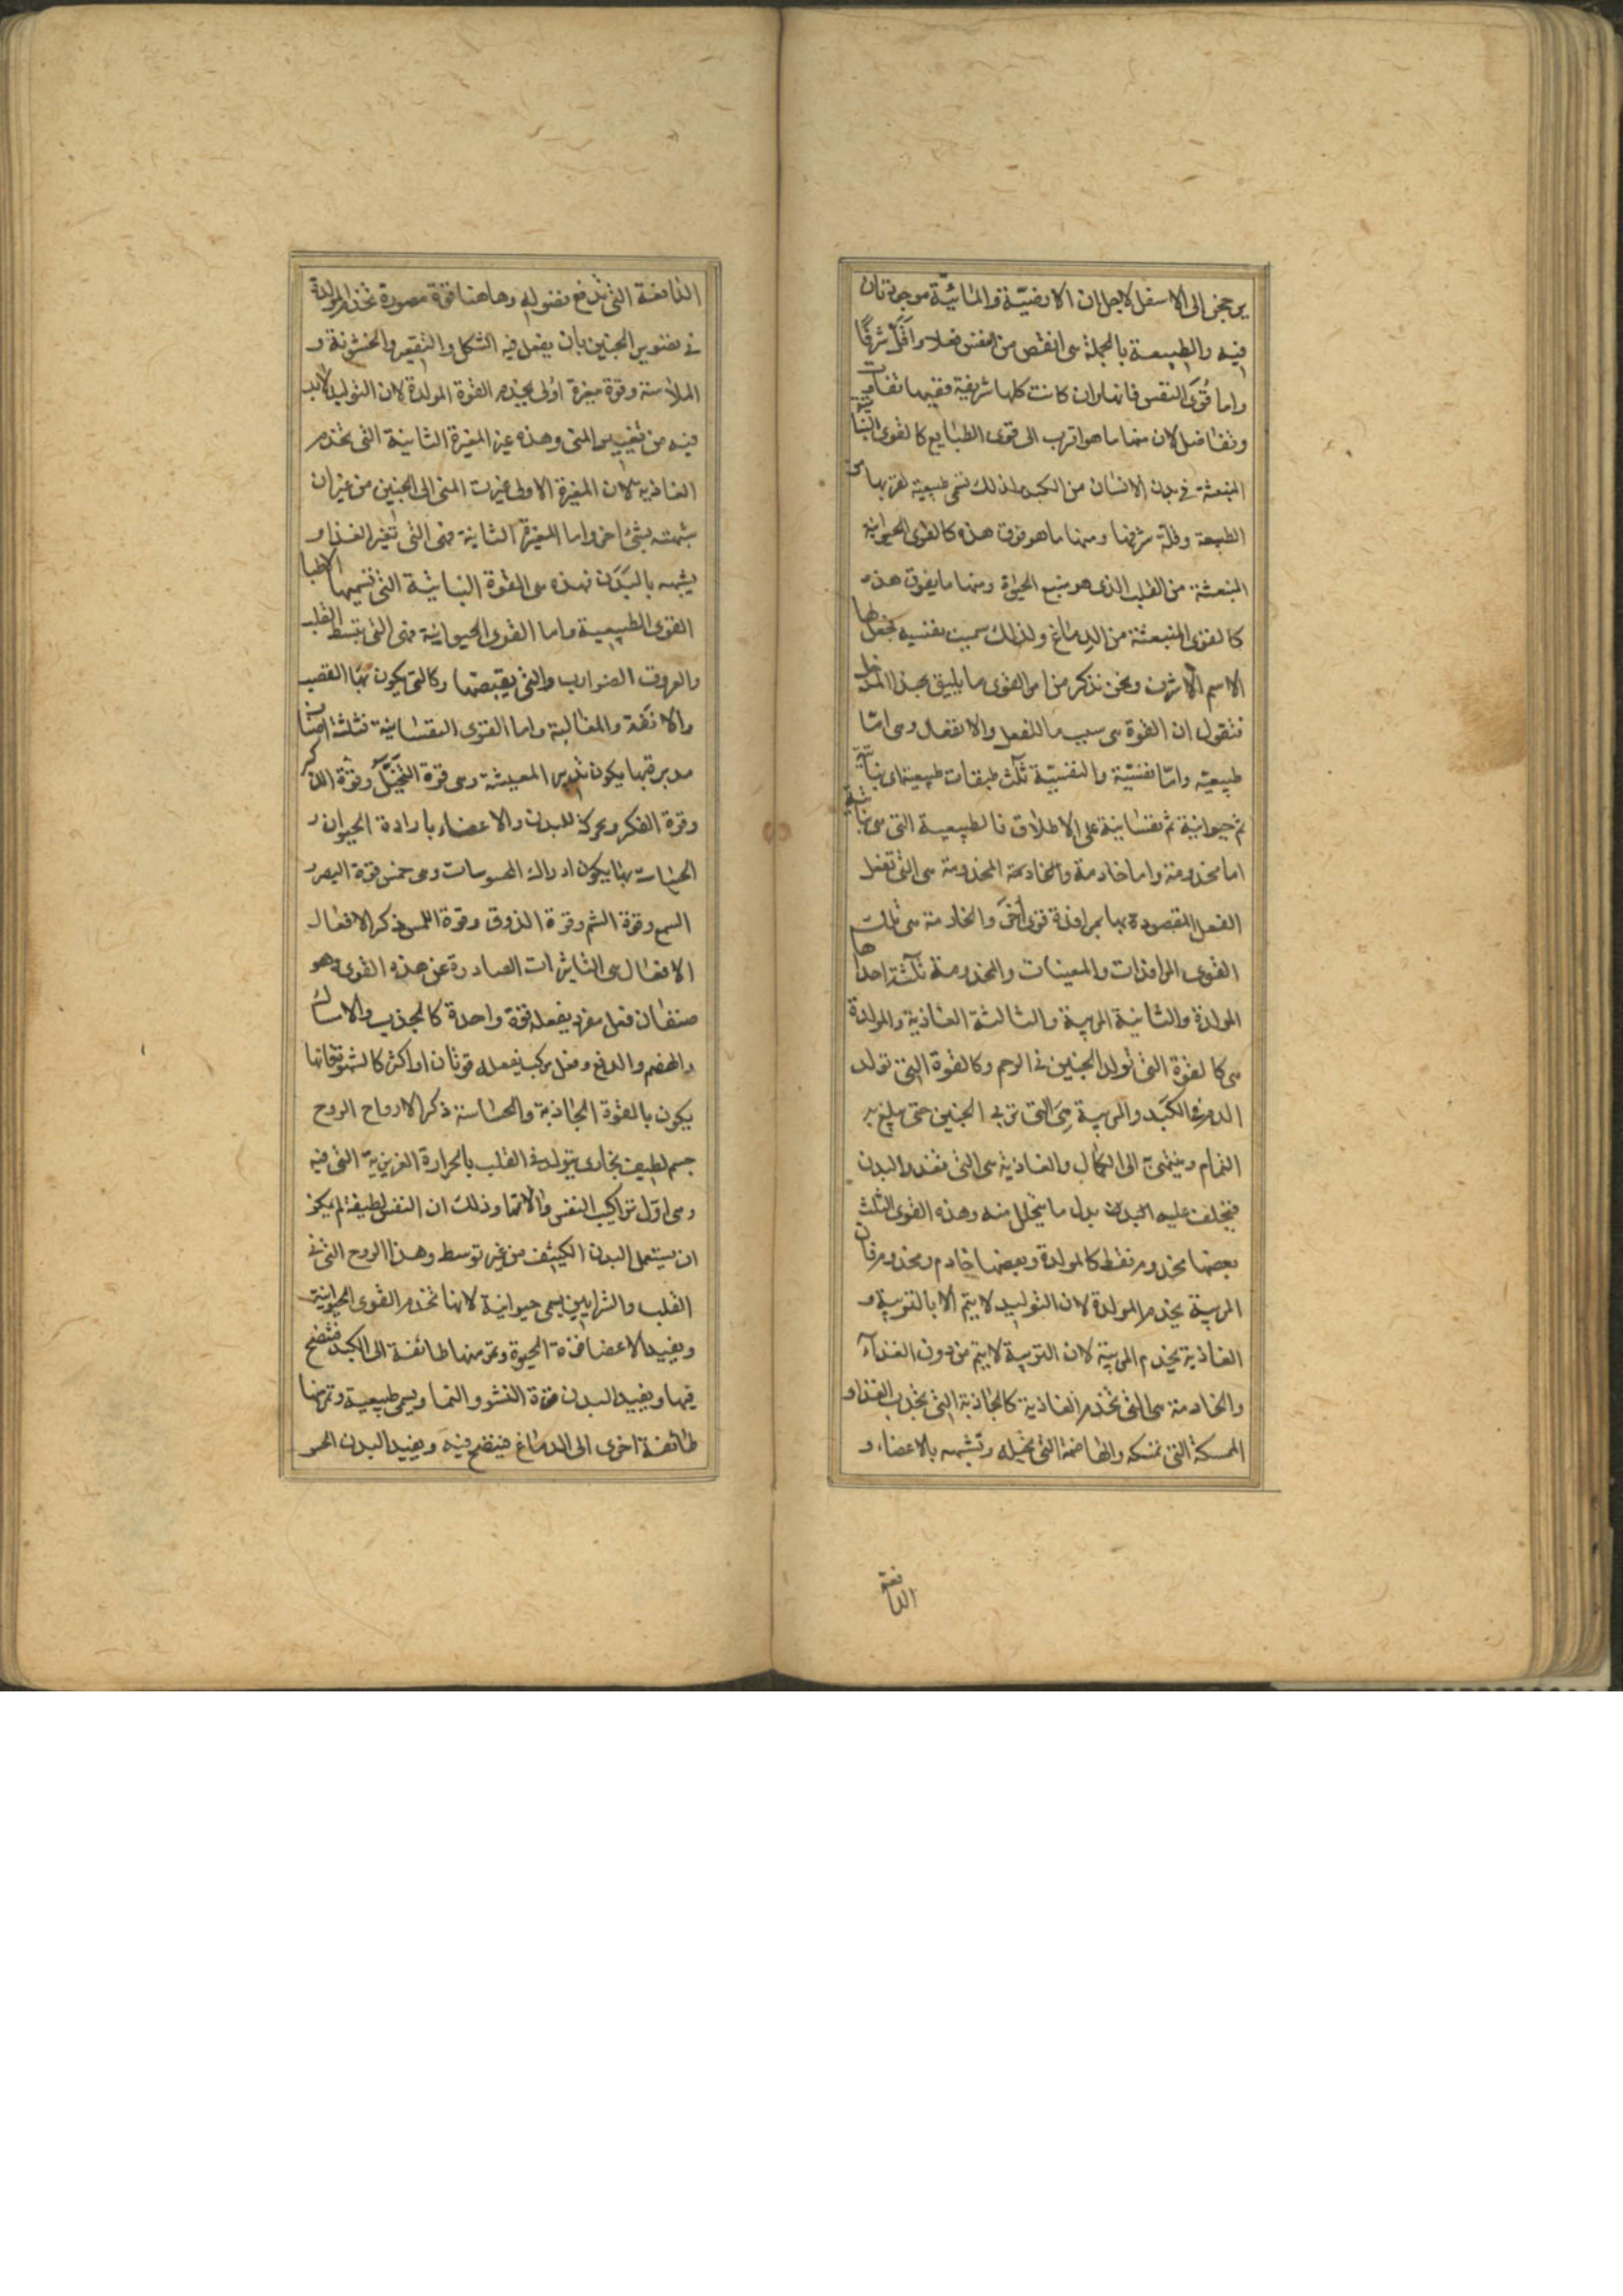 يرجحن الى الاسفل لاجل ان الارضية والمائية موجودتان
فيه والطبيعة بالجملة هى انقص من النفس فعلا واقل شرفًا
واما قوى النفس فانها وان كانت كلها شريفة ففيها تفاوت
وتفاضل لان منها ما هو اقرب الى قوى الطبايع كالقوى النباتية
المنبعثة فى بدن الانسان من الكبد ولذلك تسمى طبيعية لقربها من
الطبيعة وقلة شرفها ومنها ما هو فوق هذه كالقوى الحيوانية
المنبعثة من القلب الذى هو منبع الحيوة ومنها ما يفوق هذه
كالقوى المنبعثة من الدماغ ولذلك سميت نفسيه لجعل لها
الاسم الاشرف ونحن نذكر من امر القوى ما يليق بهذا المدخل
فنقول ان القوة هى سبب ما للفعل والانفعال وهى اما
طبيعية واما نفسية والنفسية ثلث طبقات طبيعية اى نباتية
ثم حيوانية ثم نفسانية على الاطلاق فالطبيعية التى هى نباتية
اما مخدومة واما خادمة والمخدومة هى التى تفعل
الفعل المقصودة بها بمرافدة قوى اخرَ والخادمة هى تلك
القوى المرافدات والمعينات والمخدومة ثلثة احداها
المولدة والثانية المربية والثالثة الغاذية والمولدة
هى كالقوة التى تولد الجنين فى الرحم وكالقوة التى تولد
الدم فى الكبد والمربية هِىَ التى تربى الجنين حتى يبلغ به
التمام وينتهى الى الكمال والغاذية هى التى تغذو البدن
فيخلف عليه البدن بدل ما يتحلل منه وهذه القوى الثلث
بعضها مخدوم فقط كالمولدة وبعضها خادم ومخدوم فان
المربية يخدم المولدة لان التوليد لا يتم الا بالتربية و
الغاذية يخدم المربية لان التربية لا يتم من دون الغذآء
والخادمة هى التى تخدم الغاذية كالجاذبة التى تجذب الغذاء و
الممسكة التى تمسكه والهاضمة التى تحيله وتشبهه بالاعضاء و
الدافعة
الدافعة التى تدفع فضوله وهاهنا قوة مصورة تخدم المولدة
فى تصوير الجنين بان يفعل فيه الشكل والتقعير والخشونة و
الملاسة وقوة مغيرة اولى يخدم القوة المولدة لان التوليد لا بد
فيه من تغيير المنى وهذه غير المغيرة الثانية التى يخدم
الغاذية لان المغيرة الاولى غيرت المنى الى الجنين من غير ان
شبهته بشئ اخر واما المغيرة الثانية فهى التى تغير الغذاء و
يشبهه بالبدن فهذه هى القوة النباتية التى تسميها الاطبا
القوى الطبيعية واما القوى الحيوانية فهى التى تبسط القلب
والعروق الضوارب والتى يقبضها وكالتى يكون بها الغضب
والانفة والمغالبة واما القوى النفسانية فثلثة اصناف
مدبرة بها يكون تدبير المعيشة وهى قوة التخيّل وقوة الذكر
وقوة الفكر ومحركة للبدن والاعضاء بارادة الحيوان و
الحساسة بها يكون ادراك المحسوسات وهى خمس قوة البصر و
السمع وقوة الشم وقوة الذوق وقوة اللمس ذكر الافعال
الافعال هى التاثيرات الصادرة عن هذه القوى وهو
صنفان فعل مفرد يفعله قوة واحدة كالجذب والامساك
والهضم والدفع وفعل مركب يفعله قوتان او اكثر كالشهوة فانها
يكون بالقوة الجاذبة والحساسة ذكر الارواح الروح
جسم لطيف بخارى يتولد فى القلب بالحرارة الغريزية التى فيه
وهى اول تراكيب النفس والاتها وذلك ان النفس لطيفة لم يكن
ان يستعمل البدن الكثيف من غير توسط وهذا الروح التى فى
القلب والشرايين يسمى حيوانية لانها تخدم القوى الحيوانية
ويفيد الاعضا قوة الحيوة وتمر منها طائفة الى الكبد فتنضج
فيها ويفيد البدن قوة النشو والنما ويسمى طبيعية وتمر منها
طائفة اخرى الى الدماغ فينضج فيه ويفيد البدن الحس